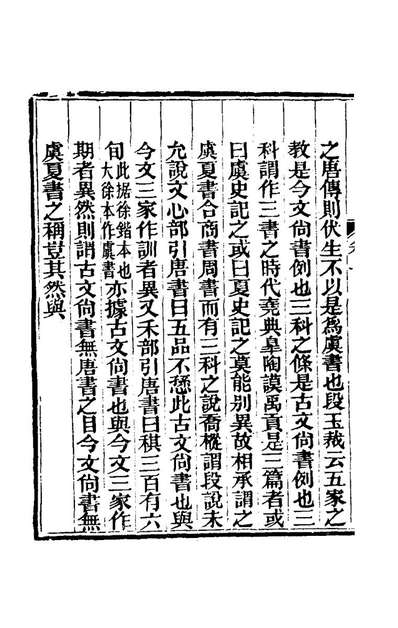 之唐傳則伏生不以是爲虞書也段玉裁云五家之
教是今文尙書例也三科之條是古文尙書例也三
科謂作三書之時代堯典皐陶謨禹貢是三篇者或
曰虞史記之或曰夏史記之莫能别異故相承謂之
虞夏書合商書周書而有三科之說喬樅謂段說未
允說文心部引唐書曰五品不悉此古文尙書也與
今文三家作訓者異又禾部引唐書曰稘三百有六
旬此據徐鍇本也大徐本作虞書亦據古文尙書也與今文三家作
期者異然則謂古文尙書無唐書之目今文尙書無
虞夏書之稱豈其然與